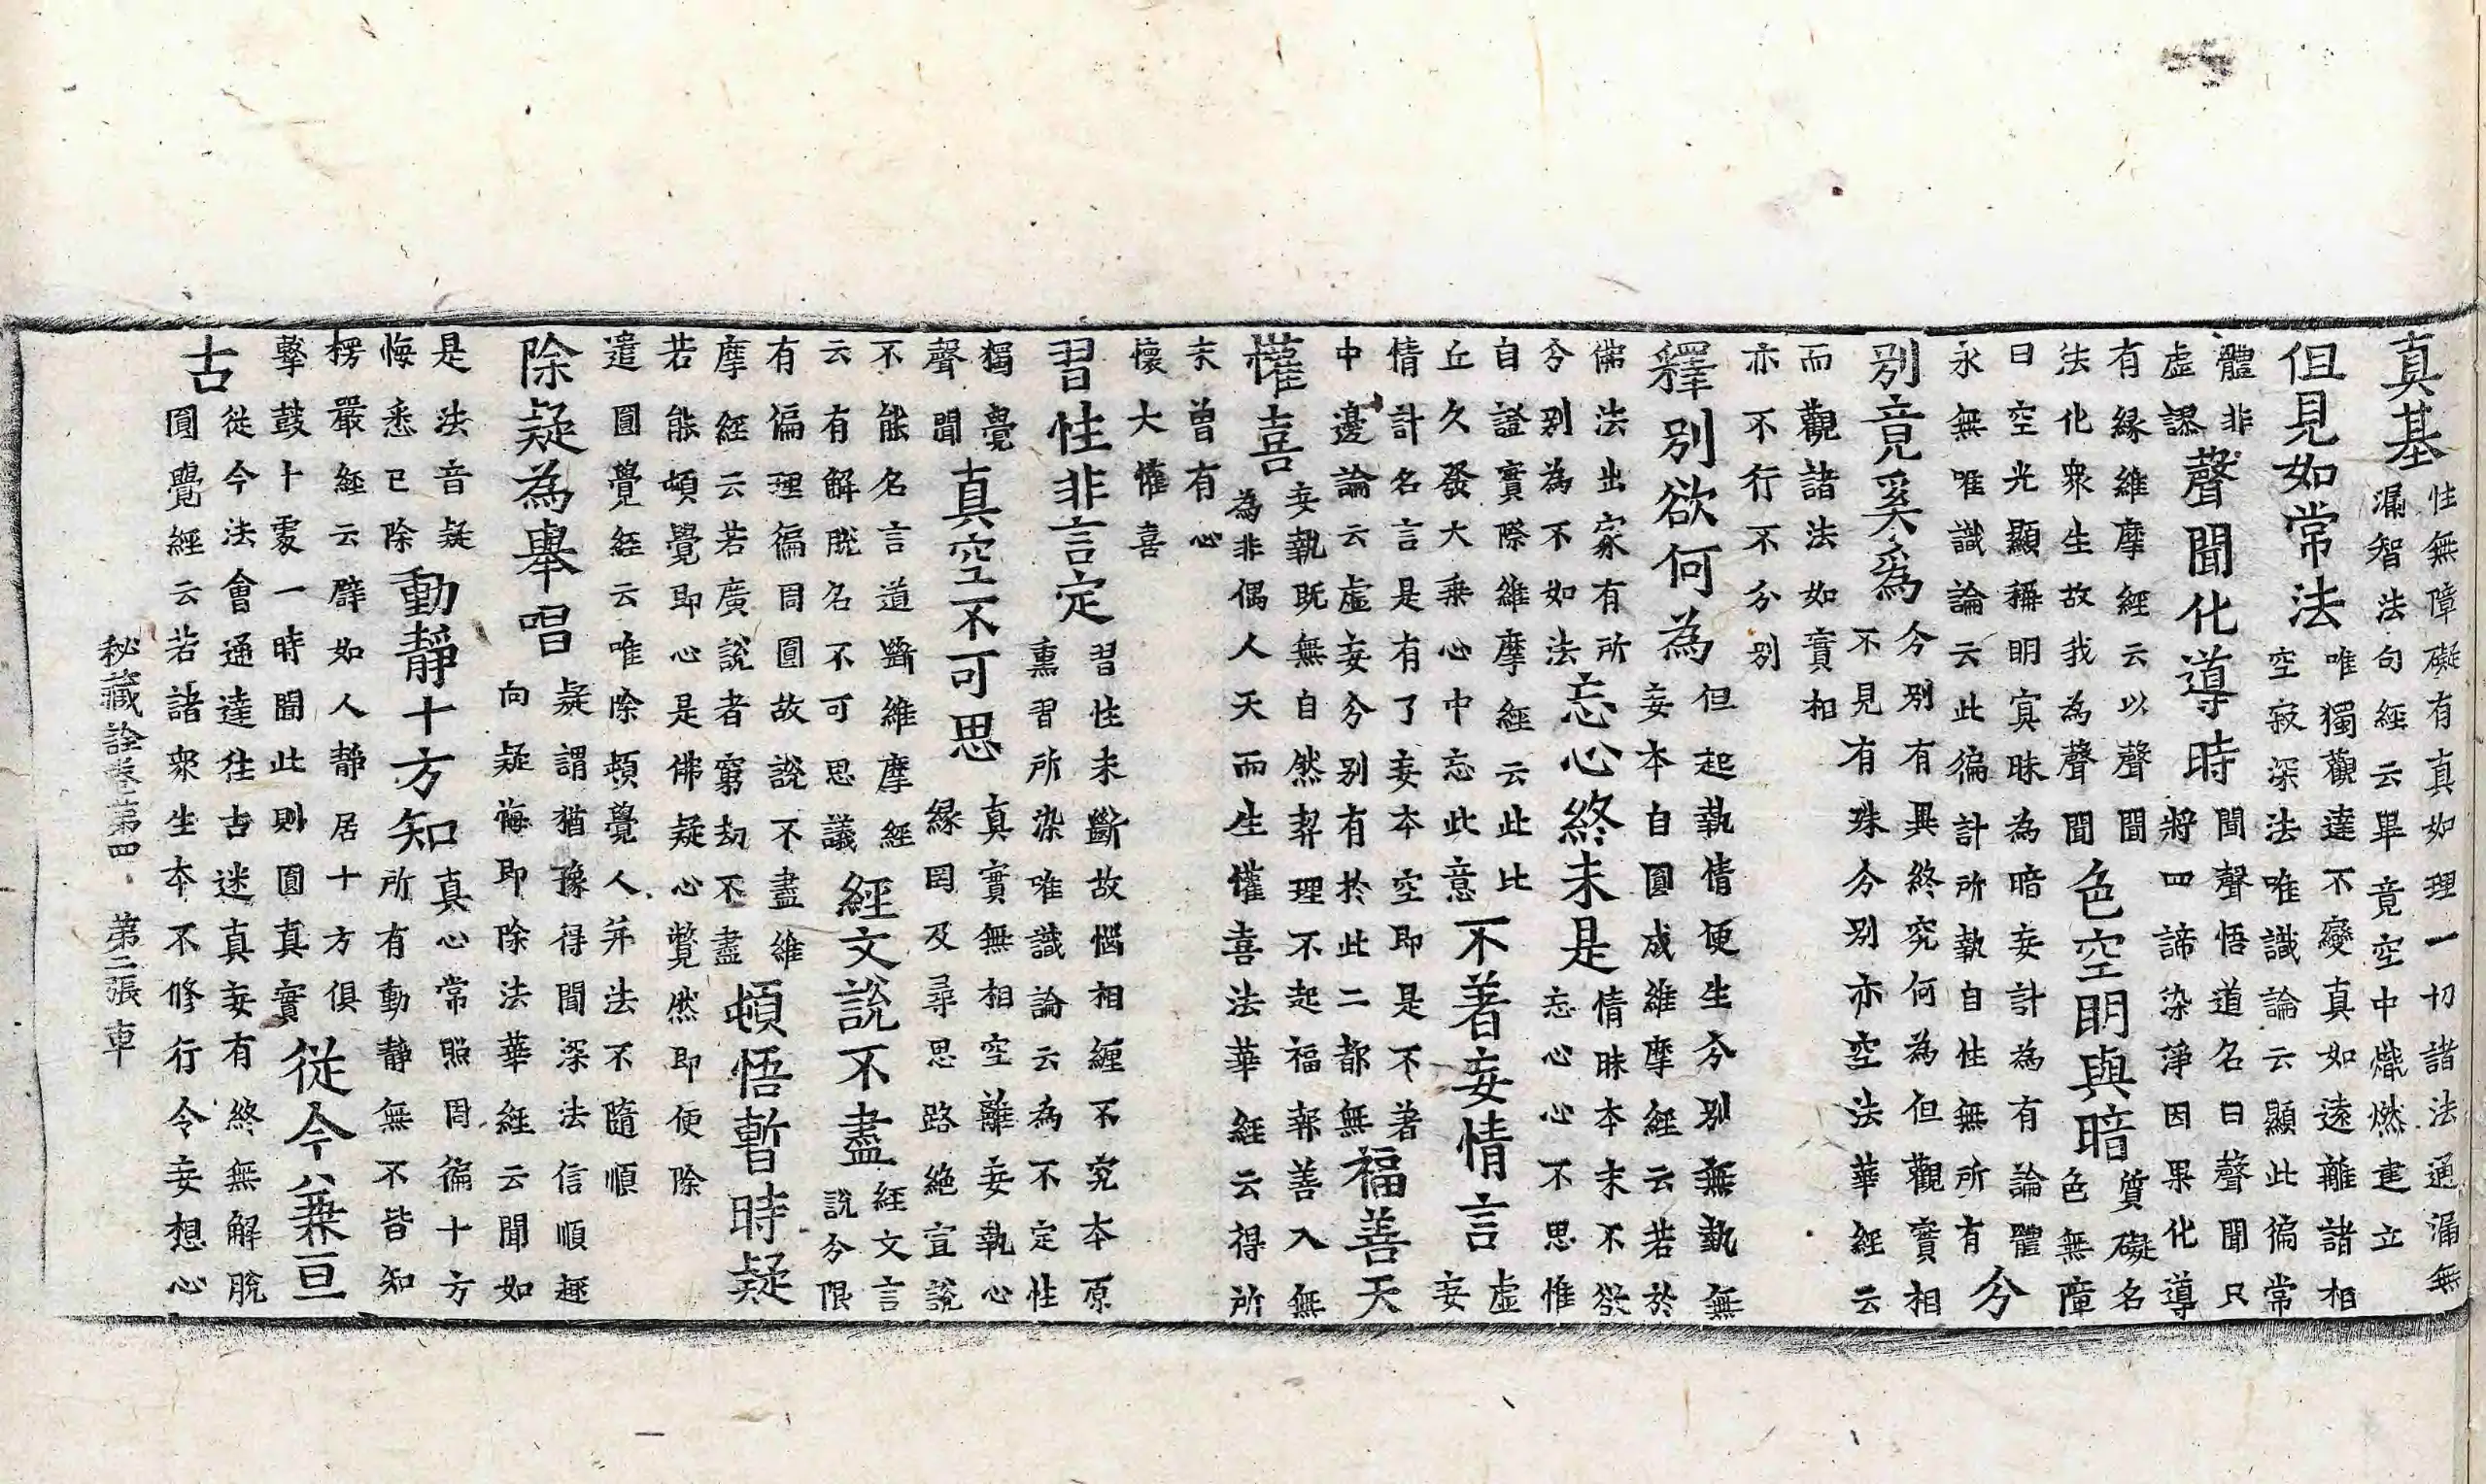 真基性無障礙有真如理一切諸法通漏無
漏智法句經云畢竟空中熾燃建立
但見如常法唯獨觀達不變真如遠離諸相
空寂深法唯識論云顯此徧常
體非
虛謬
聲聞化導時聞聲悟道名曰聲聞只
將四諦染淨因果化導
有緣維摩經云以聲聞
法化衆生故我為聲聞
色空明與暗質礙名
色無障
曰空光顯稱明㝠昧為暗妄計為有論體
永無唯識論云此徧計所執自性無所有
分
別竟奚為今別有異終究何為但觀實相
不見有殊分別亦空法華經云
而觀諸法如實相
亦不行不分別
釋別欲何為但起執情便生分別無執無
妄本自圓成維摩經云若於
佛法出家有所
分別為不如法
忘心終未是情昧本末不欲
忘心心不思惟
自證實際維摩經云此比
丘久發大乘心中忘此意
不著妄情言虛
妄
情計名言是有了妄本空即是不著
中邊論云虛妄分別有於此二都無
福善天
懽喜妄執既無自然契理不起福報善入無
為非偶人天而生懽喜法華經云得所
未曾有心
懷大懽喜
習性非言定習性未斷故惱相纏不究本原
熏習所染唯識論云為不定性
獨覺
聲聞
真空不可思真實無相空離妄執心
緣罔及尋思路絕宣說
不能名言道斷維摩經
云有解脫名不可思議
經文說不盡經文言
說分限
有偏理徧周圓故說不盡維
摩經云若廣說者窮劫不盡
頓悟暫時疑
若能頓覺即心是佛疑心瞥然即便除
遣圓覺經云唯除頓覺人并法不隨順
除疑為舉唱疑謂猶豫得聞深法信順趣
向疑悔即除法華經云聞如
是法音疑
悔悉已除
動靜十方知真心常照周徧十方
所有動靜無不皆知
楞嚴經云譬如人靜居十方俱
擊鼓十處一時聞此則圓真實
從今兼亘
古從今法會通達往古迷真妄有終無解脫
圓覺經云若諸衆生本不修行令妄想心
秘藏詮卷第四 第二張 車